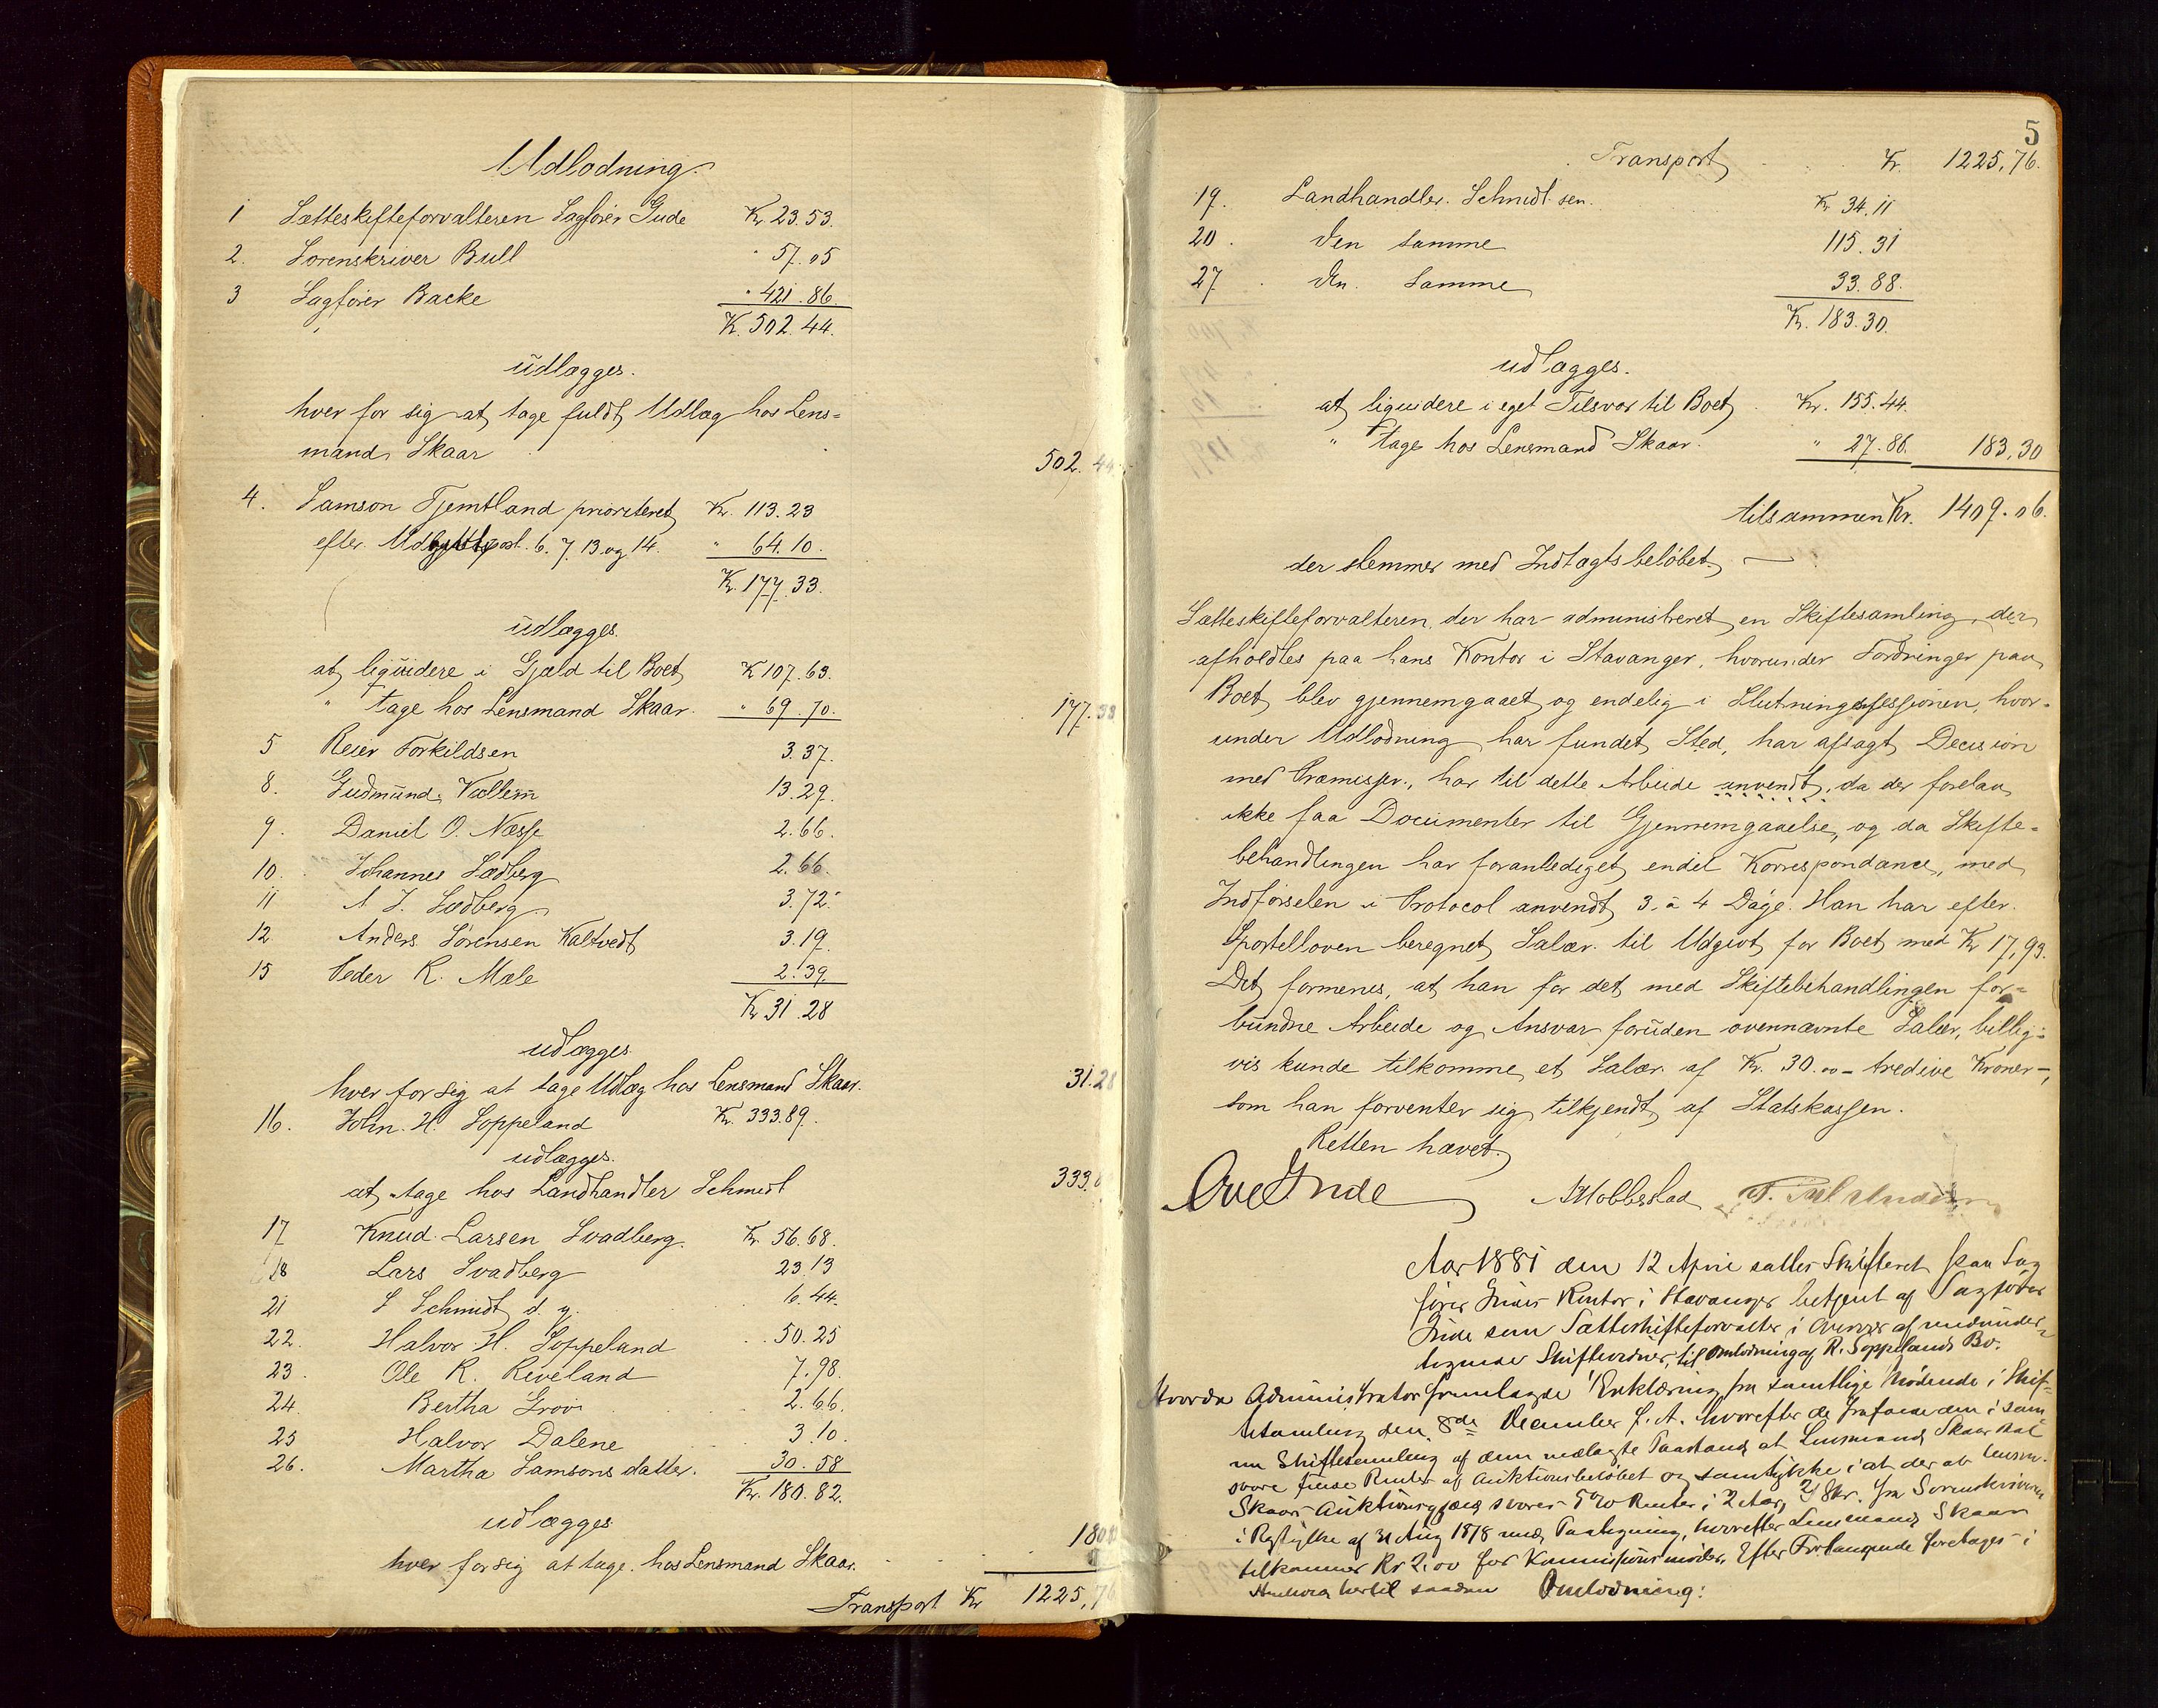 Udlodning
1 Sætteskifteforvalteren Sagfører Gude Kr. 23.53.
2. Sorenskriver Bull " 57.05
3 Sagfører Backe " 421.86.
Kr. 502.44.
udlægges.
hver for sig at tage fuldt Udlæg hos Lens-
mand Skaar 502.44
4. Samson Tjemtland prioriteret Kr. 113.23
efter 6. 7. 13 og 14. " 64.10.
Kr. 177.33.
udlægges.
at liquidere i Gjæld til Boet Kr 107.63.
" tage hos Lensmand Skaar. " 69.70. 177.33
5 Reier Torkildsen 3.37.
8. Gudmund Vallem 13.29.
9. Daniel O. Næsse 2.66.
10. Johannes Sædberg 2.66.
11 A. J. Sædberg 3.72.
12 Anders Sørensen Kaltvedt 3.19.
15 Peder R. Mæle 2.39.
Kr 31.28
udlægges
hver for sig at tage Udlæg hos Lensmand Skaar. 31.28
16. John. H. Soppeland Kr. 333.89.
udlægges.
at tage hos Landhandler Schmidt 333.
17 Knud Larsen Svadberg. Kr. 56.68.
18 Lars Svadberg 23.13
21 S Schmidt d. y. 6.44.
22. Halvor H. Soppeland 50.25
23. Ole R. Reveland 7.98.
24. Bertha Grovi 2.66.
25 Halvor Dalene 3.10.
26. Martha Samsons datter. 30.58
Kr. 180.82.
udlægges
hver for sig at tage hos Lensmand Skaar. 180
Transport Kr 1225,76
5
Transport Kr. 1225,76.
19. Landhandler Schmidt sen. Kr 34.11
20. den samme 115.31
27. den samme 33.88.
Kr. 183.30.
udlægges.
at liquidere i eget Tilsvar til Boet Kr. 155.44.
" tage hos Lensmand Skaar. " 27.86. 183,30
tilsammen Kr. 1409.06.
der stemmer med Indtægtsbeløbet.
Sætteskifteforvalteren, der har administreret en Skiftesamling, der
afholdtes paa hans Kontor i Stavanger, hvorunder Fordringer paa
Boet blev gjennemgaaet og endelig i Slutningssessionen, hvor-
under Udlodning har fundet Sted, har afsagt Decision
med Præmisser, har til dette Arbeide anvendt, da der forelaa
ikke faa Documenter til Gjennemgaaelse, og da Skifte-
behandlingen har foranlediget endel Korrespondance, med
Indførselen i Protocol anvendt 3 à 4 Dage. Han har efter
Sportelloven beregnet Salær til Udgivt for Boet med Kr 17,93.
Det formenes, at han for det med Skiftebehandlingen for-
bundne Arbeide og Ansvar foruden ovennævnte Salær, billig-
vis kunde tilkomme et Salær af Kr. 30.00 - tredive Kroner -,
som han forventer sig tilkjendt af Statskassen.
Retten hævet.
Ove Gude
Aar 1881 den 12 April sattes Skifteret paa Sag
fører Gudes Kontor i Stavanger betjent af Sagfører
Gude som Sætteskifteforvalter i Overvær af medunder-
tegnede Skiftevidner, til Omlodning af R. Soppelands Bo.
Hvorda Administrator fremlagde Erklæring fra samtlige Mødende i Skif-
tesamling den 8de December f. A. hvorefter de frafalde den i sam
me Skiftesamling af dem nedlagte Paastand at Lensmand Skaar skal
svare disse Renter af Auktionsbeløbet og samtykke i at der
Skaars Auktionsgjæld svares 5% Renter i 2 Aar, fra Sorenskriveren
i Ryfylke af 31 Aug 1878 med Paategning, hvorefter Lensmand Skaar
tilkommer Kr 2.00 for Kommissions møder. Efter Forlangende foretages i
Henhold hertil saadan Omlodning: